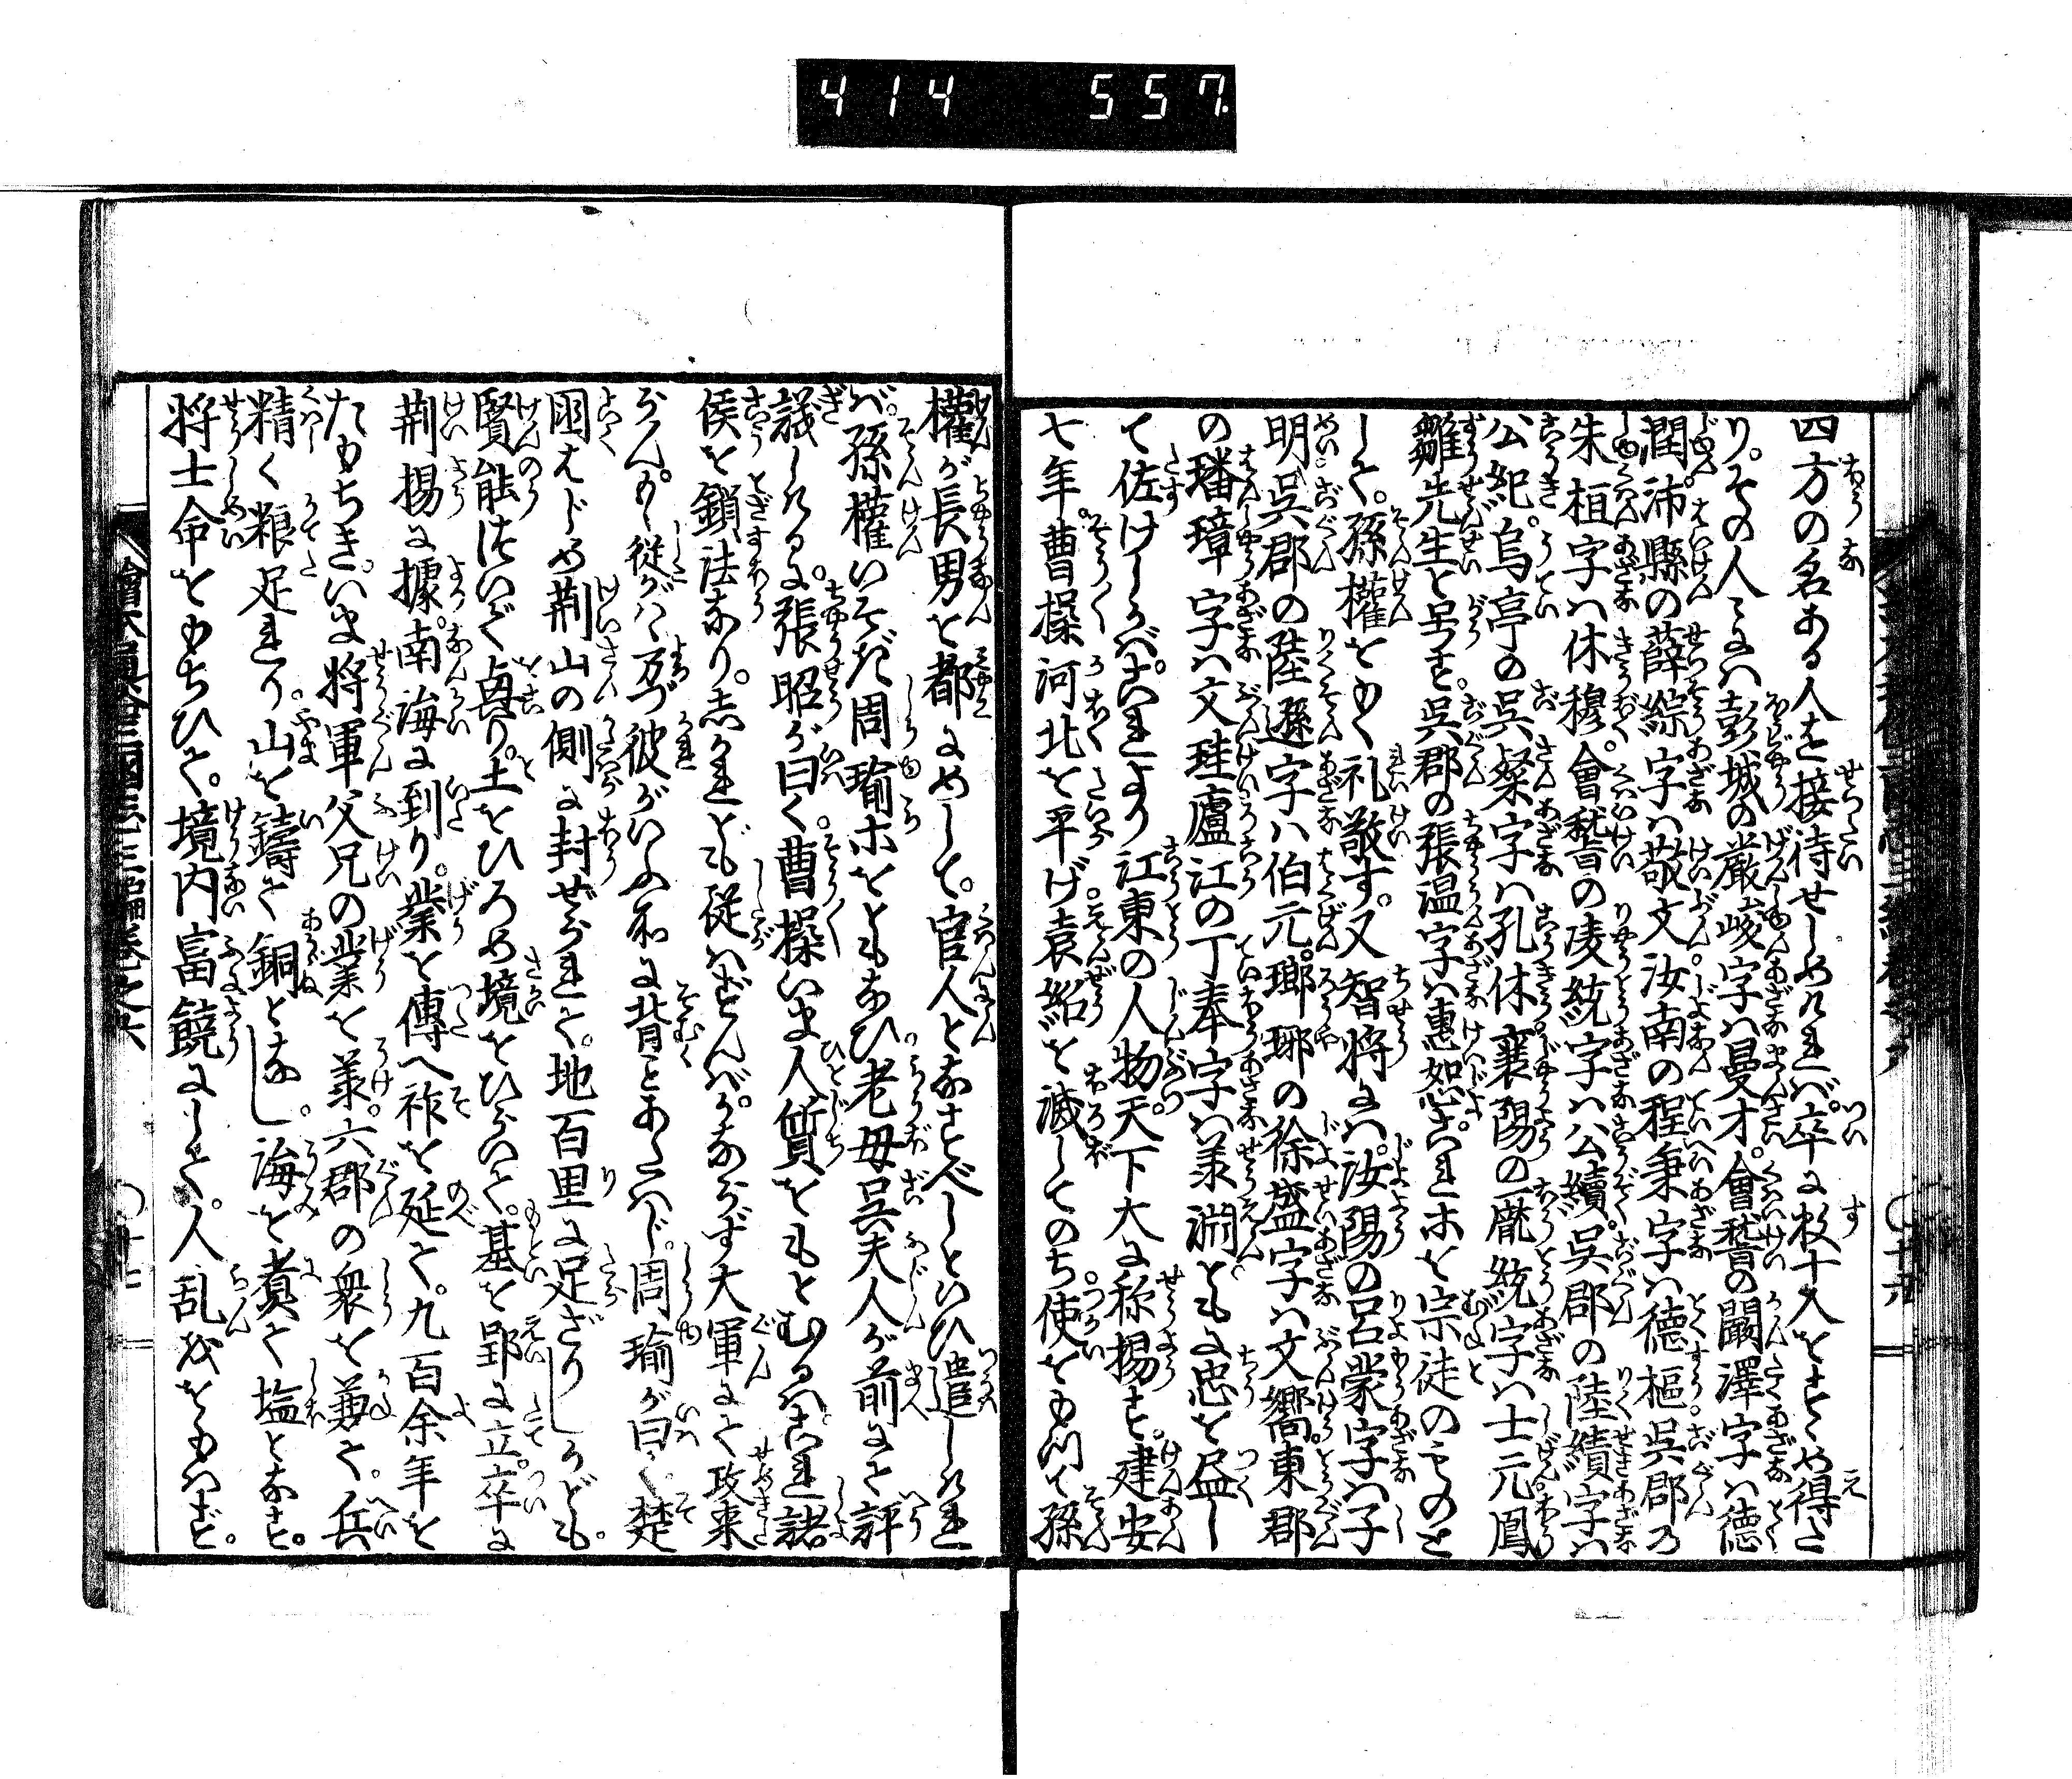 414 557.
四方の名ある人を接待せしめければ。卒に数十人をすゝめ得た
り。その人々には彭城の厳畯字は曼才。會稽の闞澤字は徳
潤。沛縣の薛綜字は敬文汝南の程秉字は徳樞呉郡の
朱桓字は休穆。會稽の凌統字は公續。呉郡の陸績字は
公紀。烏亭の呉粲字は孔休襄陽の龐統字は士元鳳
雛先生と号す。呉郡の張温字は惠恕これホを宗徒のものと
して。孫權をもく礼敬す。又智将には汝陽の呂蒙字は子
明呉郡の陸遜字は伯元。瑯琊の徐盛字は文嚮。東郡
の璠璋字は文珪廬江の丁奉字は羕淵ともに忠を盡し
て佐けしかば。これより江東の人物天下大に称揚す。建安
七年。曹操河北を平げ。袁紹を滅してのち。使をもつて孫
權が長男を都にめして。官人となすべしといひ遣しけれ
ば。孫權いそぎ周瑜ホをともなひ老母呉夫人が前にて評
議しけるに。張昭が曰く。曹操いま人質をもとむるはこれ諸
侯を鎖法なり。しかれども従はずんばかならず大軍にて攻来
らん。もし従がへば万づ彼がいふ所に背ことあたはじ。周瑜が曰く楚
国はじめ荆山の側に封ぜられて。地百里に足ざりしかども。
賢能ついで興り。土をひろめ境をひらいて。基を郢に立。卒に
荆揚に據。南海に到り。業を傳へ祚を延て。九百余年を
たもちき。いま将軍父兄の業を羕。六郡の衆を兼て。兵
精く粮足れり。山を鑄て銅となし。海を煮て塩となす。
将士命をもちひて。境内富饒にして。人乱をおもはず。